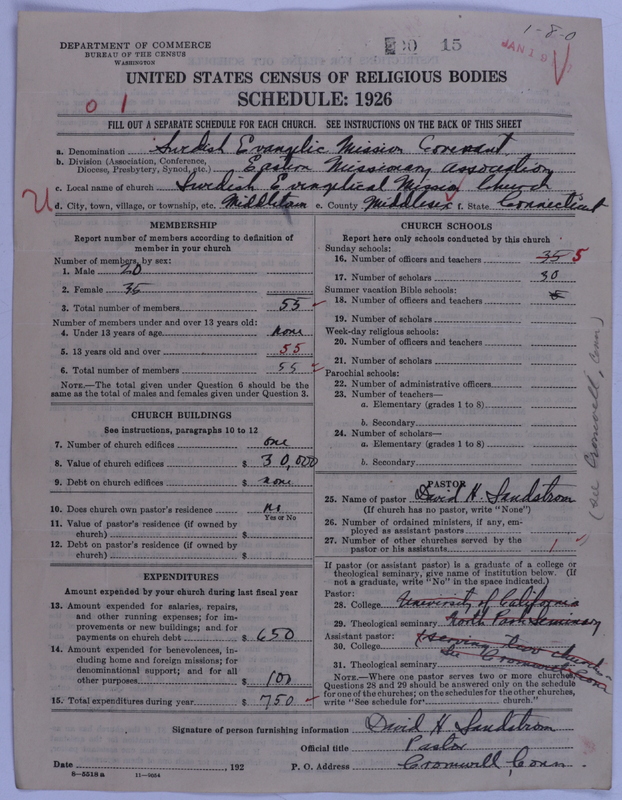 1-8-0
DEPARTMENT OF COMMERCE
BUREAU OF THE CENSUS
WASHINGTON
15
JAN 19
UNITED STATES CENSUS OF RELIGIOUS BODIES
SCHEDULE: 1926
0 1
FILL OUT A SEPARATE SCHEDULE FOR EACH CHURCH. SEE INSTRUCTIONS ON THE BACK OF THIS SHEET
a. Denomination Swedish Evangelic Mission Covenant
b. Division (Association, Conference, Diocese, Presbytery, Synod, etc.) Eastern Missionary Association
c. Local name of church Swedish Evangelical Mission Church
d. City, town, village, or township, etc. Middletown e. County Middlesex f. State Connecticut
MEMBERSHIP
Report number of members according to definition of
member in your church
Number of members, by sex:
1. Male 20
2. Female 35
3. Total number of members 55
Number of members under and over 13 years old:
4. Under 13 years of age none
5. 13 years old and over 55
6. Total number of members 55
NOTE.—The total given under Question 6 should be the
same as the total of males and females given under Question 3.
CHURCH BUILDINGS
See instructions, paragraphs 10 to 12
7. Number of church edifices one
8. Value of church edifices $ 30,000
9. Debt on church edifices $ none
10. Does church own pastor's residence no
Yes or No
11. Value of pastor's residence (if owned by
church) $
12. Debt on pastor's residence (if owned by
church) $
EXPENDITURES
Amount expended by your church during last fiscal year
13. Amount expended for salaries, repairs,
and other running expenses; for im-
provements or new buildings; and for
payments on church debt $ 650
14. Amount expended for benevolences, in-
cluding home and foreign missions; for
denominational support; and for all
other purposes $ 100
15. Total expenditures during year $ 750
CHURCH SCHOOLS
Report here only schools conducted by this church
Sunday schools:
16. Number of officers and teachers 35 5
17. Number of scholars 30
Summer vacation Bible schools:
18. Number of officers and teachers
19. Number of scholars
Week-day religious schools:
20. Number of officers and teachers
21. Number of scholars
Parochial schools:
22. Number of administrative officers
23. Number of teachers—
a. Elementary (grades 1 to 8)
b. Secondary
24. Number of scholars—
a. Elementary (grades 1 to 8)
b. Secondary
(see Cromwell, Conn)
PASTOR
25. Name of pastor David H. Sandstrom
(If church has no pastor, write "None")
26. Number of ordained ministers, if any, em-
ployed as assistant pastors
27. Number of other churches served by the
pastor or his assistants 1
If pastor (or assistant pastor) is a graduate of a college or
theological seminary, give name of institution below. (If
not a graduate, write "No" in the space indicated.)
Pastor:
28. College University of California
29. Theological seminary North Park Seminary
Assistant pastor: (serving two church
30. College
31. Theological seminary
NOTE.—Where one pastor serves two or more churches,
Questions 28 and 29 should be answered only on the schedule
for one of the churches; on the schedules for the other churches,
write "See schedule for church."
Signature of person furnishing information David H Sandstrom
Official title Pastor
Date , 192 P. O. Address Cromwell, Conn.
8—5518 a 11—9084